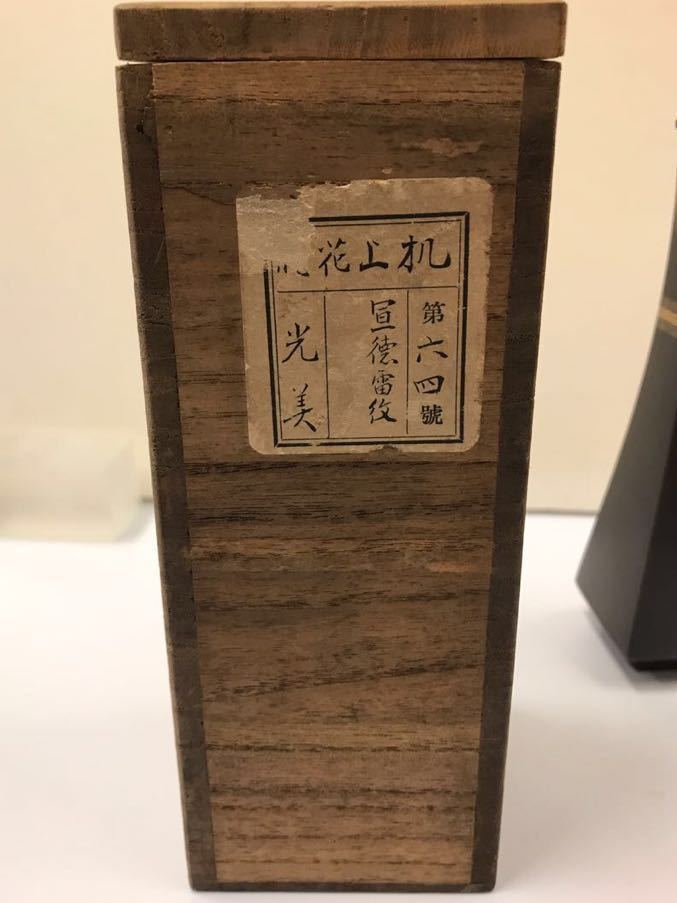 机上花
第六四號
宣德雷紋
光美